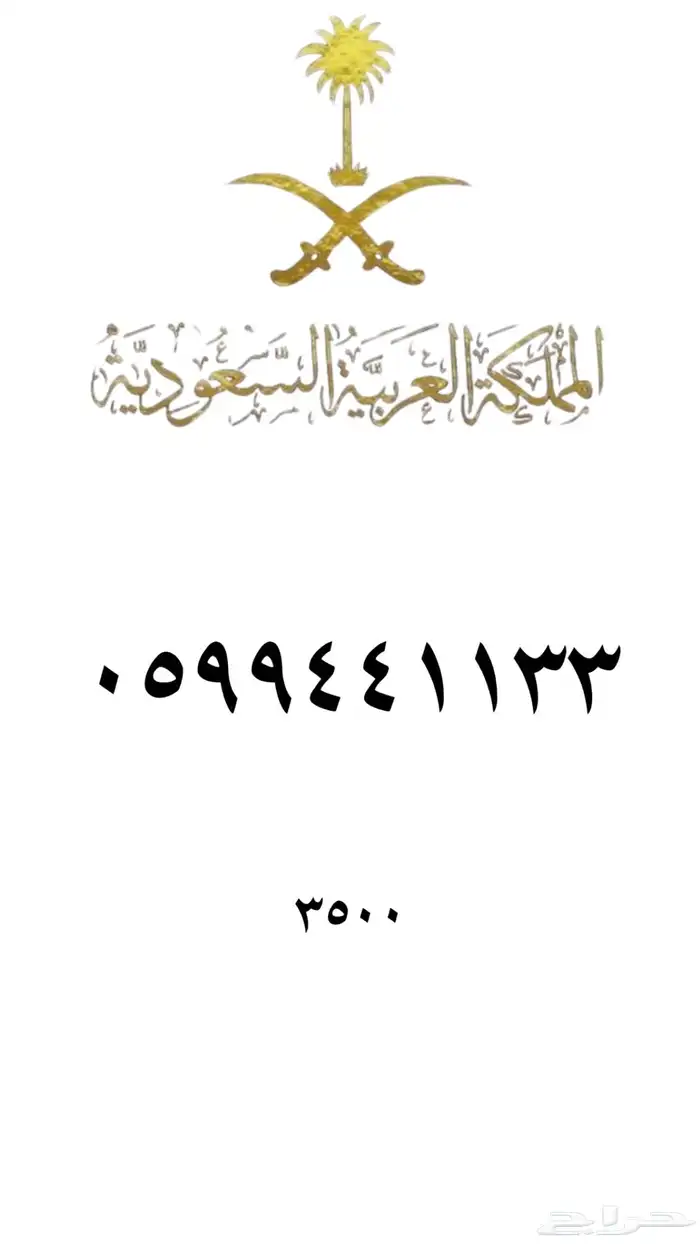 المملكة العربية السعودية
٠٥٩٩٤٤١١٣٣
٣٥٠٠
حراج